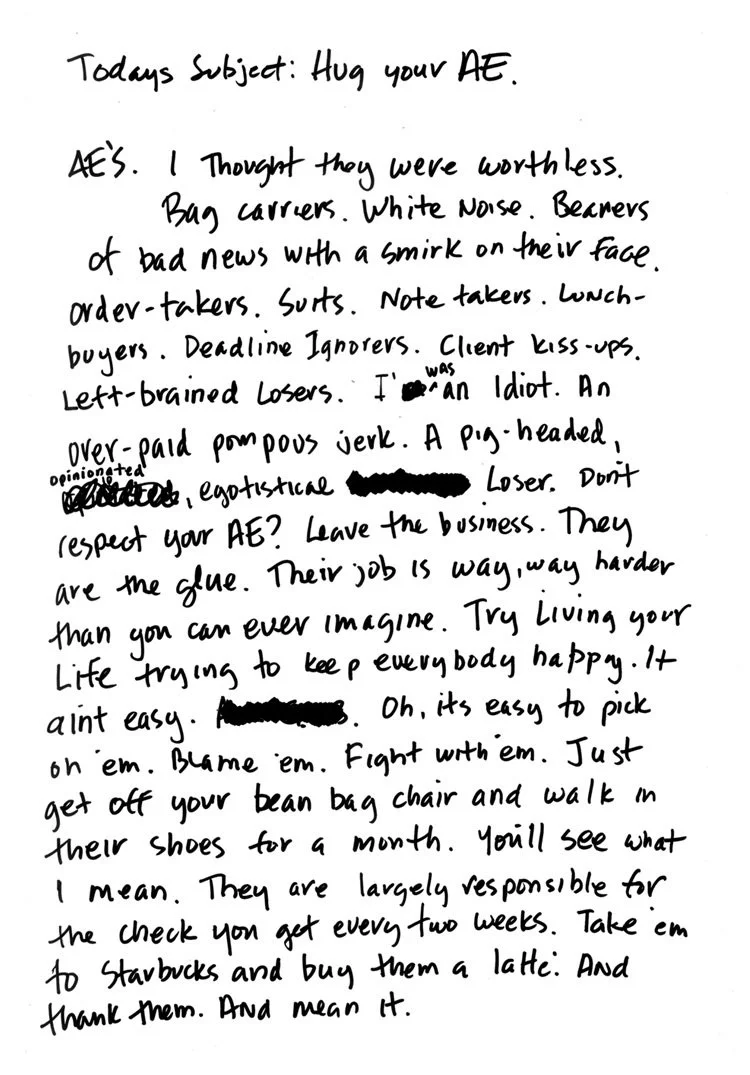 Todays Subject: Hug your AE.
AE'S. I Thought they were worthless.
Bag carriers. White Noise. Bearers
of bad news with a smirk on their face.
Order-takers. Suits. Note takers. Lunch-
buyers. Deadline Ignorers. Client kiss-ups.
Left-brained Losers. I was an Idiot. An
over-paid pompous jerk. A pig-headed,
opinionated, egotistical Loser. Don't
respect your AE? Leave the business. They
are the glue. Their job is way, way harder
than you can ever imagine. Try Living your
Life trying to keep everybody happy. It
aint easy. Oh, its easy to pick
on 'em. Blame 'em. Fight with 'em. Just
get off your bean bag chair and walk in
their shoes for a month. You'll see what
I mean. They are largely responsible for
the check you get every two weeks. Take 'em
to Starbucks and buy them a latte. And
thank them. And mean it.